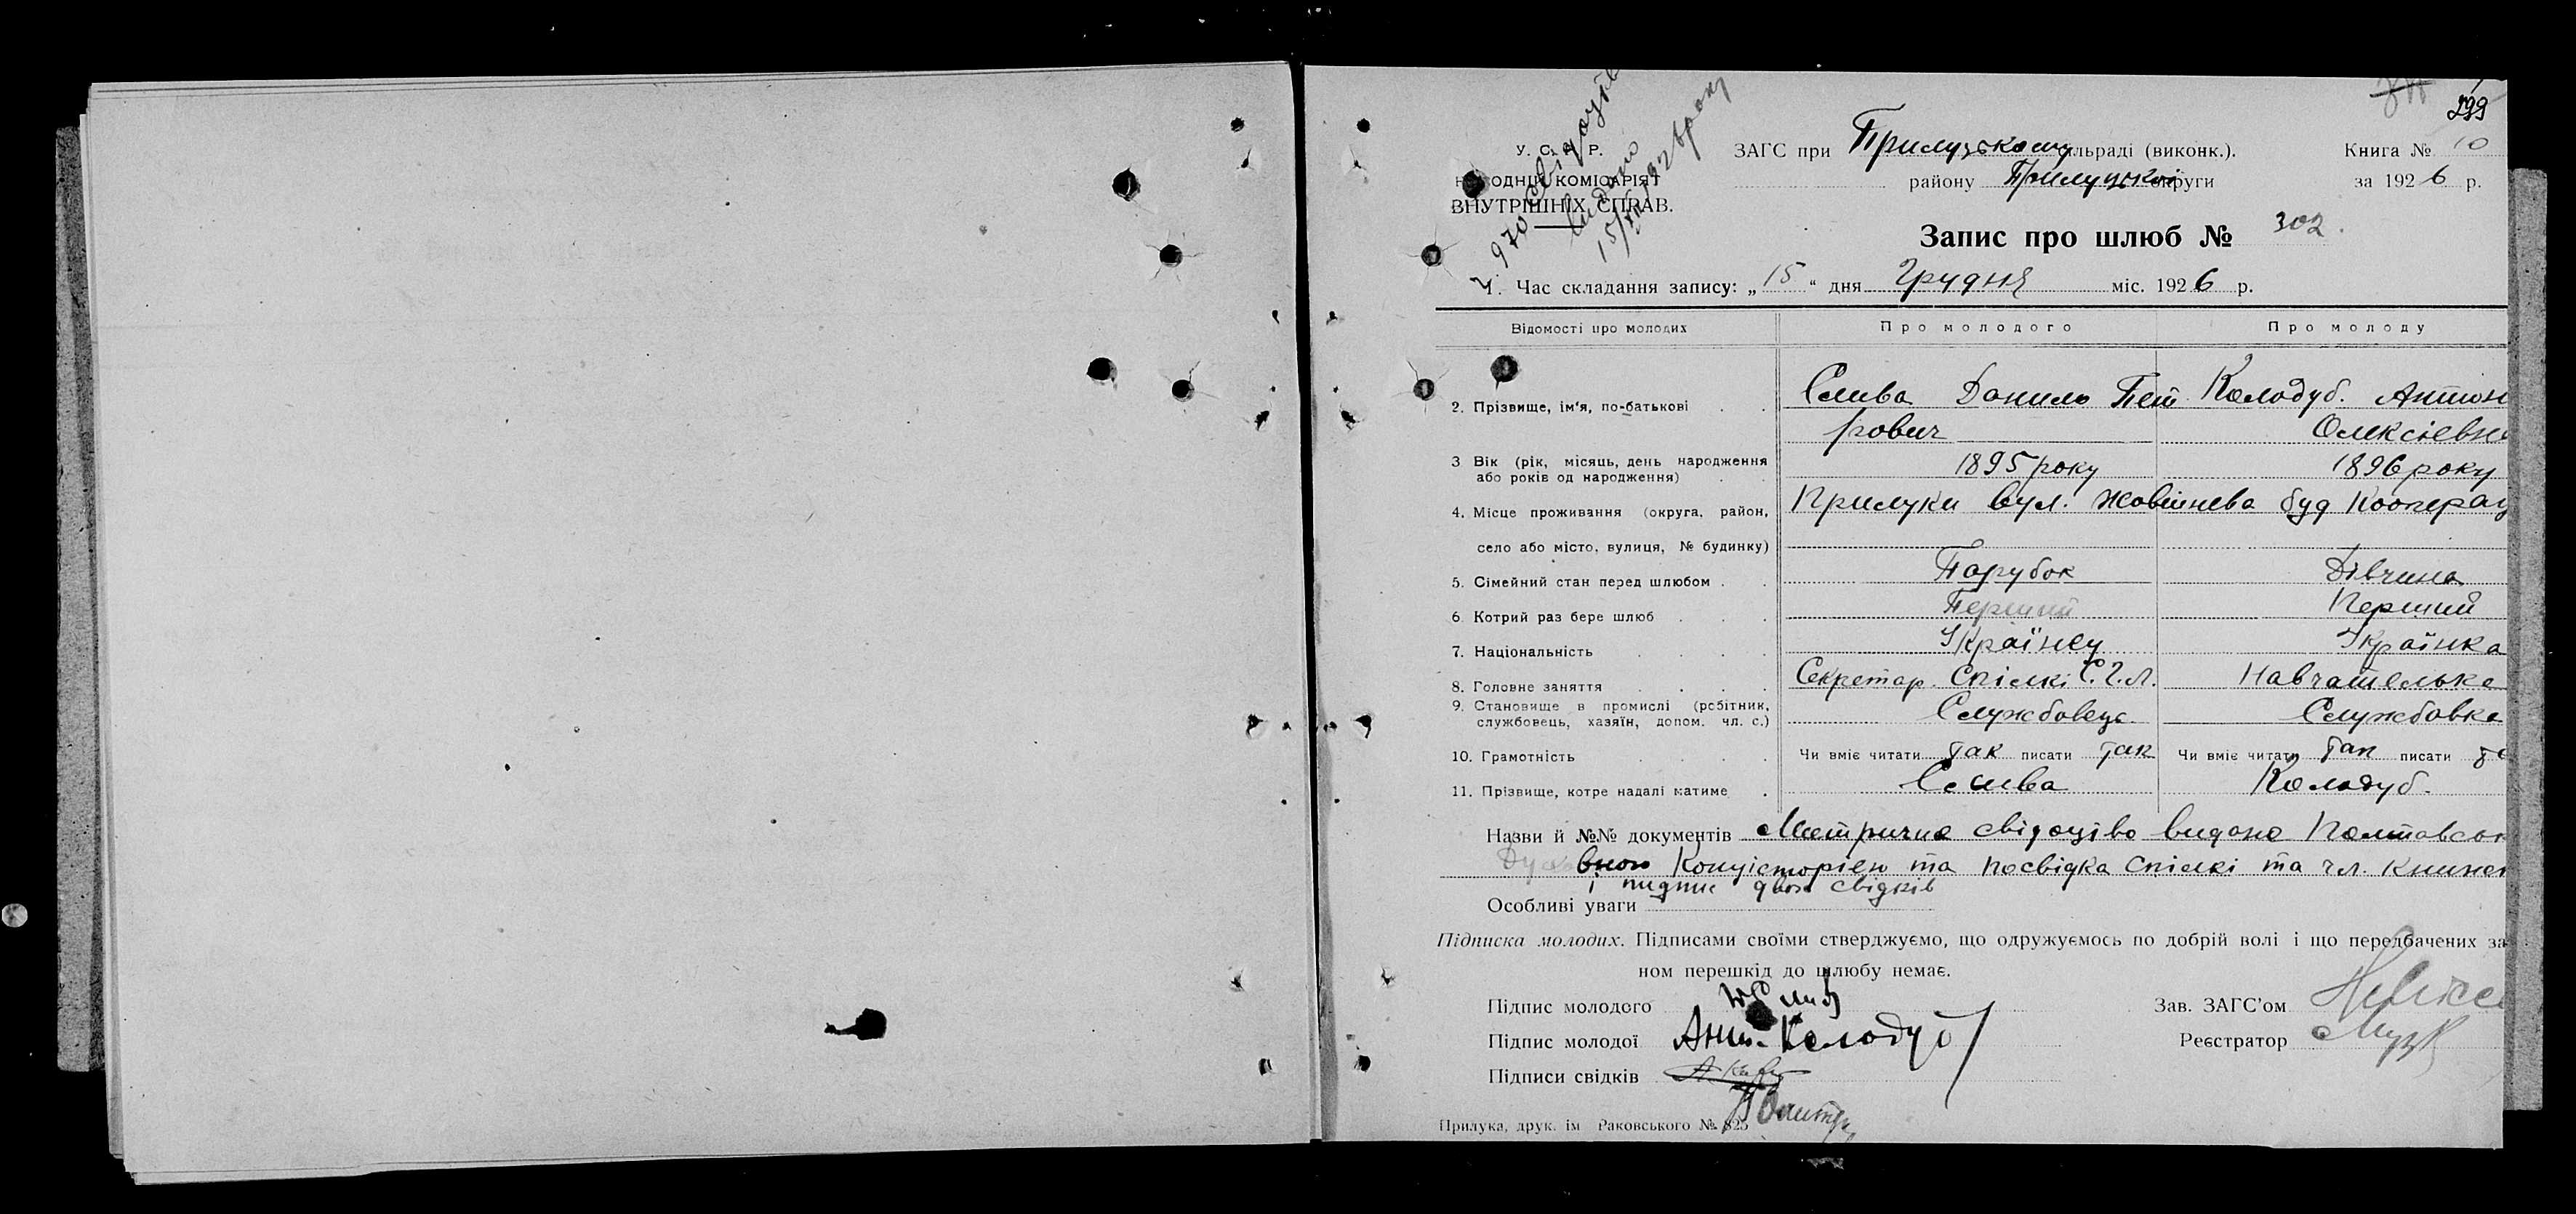 299
У. С. Р. Р.
НАРОДНІЙ КОМІСАРІЯТ
ВНУТРІШНІХ СПРАВ.
970 Свідоцтво
видано
15/XII 1926 року
ЗАГС при Прилуцькому сільраді (виконк.).
району Прилуцької округи
Книга № 10
за 1926 р.
Запис про шлюб № 302.
1. Час складання запису: „15“ дня Грудня міс. 1926 р.
Відомості про молодих Про молодого Про молоду
2. Прізвище, ім'я, по-батькові . . Слива Данило Пет Колодуб. Антон
рович Олексіевн
3 Вік (рік, місяць, день народження 1895 року 1896 року
або років од народження) . .
4. Місце проживання (округа, район, Прилуки вул. Жовтнева буд Кооперац
село або місто, вулиця, № будинку)
5. Сімейний стан перед шлюбом . . Парубок Дівчина
6. Котрий раз бере шлюб . . . Перший Перший
7. Національність . . . . Українец Українка
8. Головне заняття . . . . Секретар Спілкі С.Г.Л. Навчателька
9. Становище в промислі (робітник,
службовець, хазяїн, допом. чл. с.) Службовець Службовка
10. Грамотність . . . . Чи вміє читати так писати так Чи вміє читати так писати
11. Прізвище, котре надалі матиме . Слива Колодуб.
Назви й №№ документів Метричне свідоцтво видане Полтавськ
Духовною Консісторією та посвідка Спілкі та чл. книжеч
і підпис двох свідків
Особливі уваги
Підписка молодих. Підписами своїми стверджуємо, що одружуємось по добрій волі і що передбачених за
ном перешкід до шлюбу немає.
Підпис молодого Зав. ЗАГС'ом
Підпис молодої Ант. Колодуб Реєстратор
Підписи свідків
Прилука, друк. ім Раковського № 825